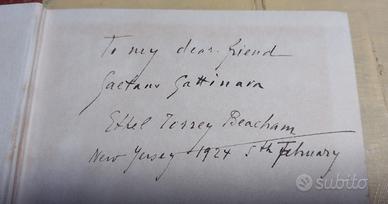 To my dear friend
Gaetano Gattinara
Ethel Torrey Beacham
New Yersey - 1924 5th February
subito